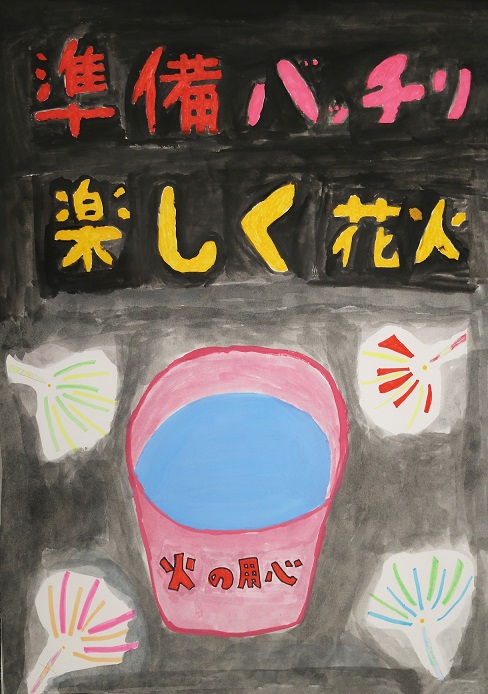 準備バッチリ
楽しく花火
火の用心